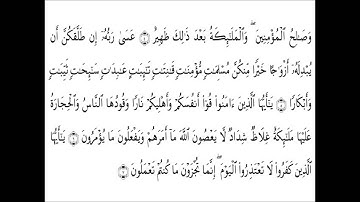 وَصَـٰلِحُ ٱلْمُؤْمِنِينَ ۖ وَٱلْمَلَـٰٓئِكَةُ بَعْدَ ذَٰلِكَ ظَهِيرٌ ۝ عَسَىٰ رَبُّهُۥٓ إِن طَلَّقَكُنَّ أَن
يُبْدِلَهُۥٓ أَزْوَٰجًا خَيْرًا مِّنكُنَّ مُسْلِمَـٰتٍ مُّؤْمِنَـٰتٍ قَـٰنِتَـٰتٍ تَـٰٓئِبَـٰتٍ عَـٰبِدَٰتٍ سَـٰٓئِحَـٰتٍ ثَيِّبَـٰتٍ
وَأَبْكَارًا ۝ يَـٰٓأَيُّهَا ٱلَّذِينَ ءَامَنُوا۟ قُوٓا۟ أَنفُسَكُمْ وَأَهْلِيكُمْ نَارًا وَقُودُهَا ٱلنَّاسُ وَٱلْحِجَارَةُ
عَلَيْهَا مَلَـٰٓئِكَةٌ غِلَاظٌ شِدَادٌ لَّا يَعْصُونَ ٱللَّهَ مَآ أَمَرَهُمْ وَيَفْعَلُونَ مَا يُؤْمَرُونَ ۝ يَـٰٓأَيُّهَا
ٱلَّذِينَ كَفَرُوا۟ لَا تَعْتَذِرُوا۟ ٱلْيَوْمَ ۖ إِنَّمَا تُجْزَوْنَ مَا كُنتُمْ تَعْمَلُونَ ۝